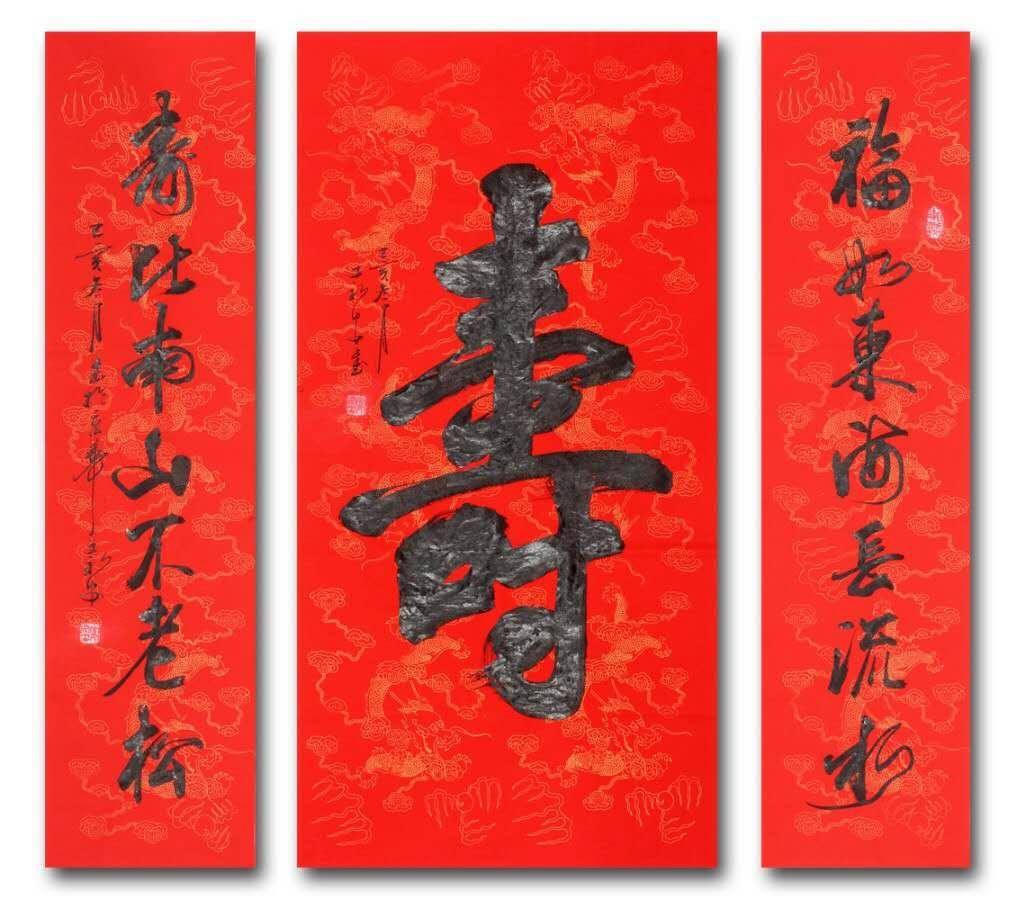 福如東海長流逝
壽
己亥冬月
壽比南山不老松
己亥冬月